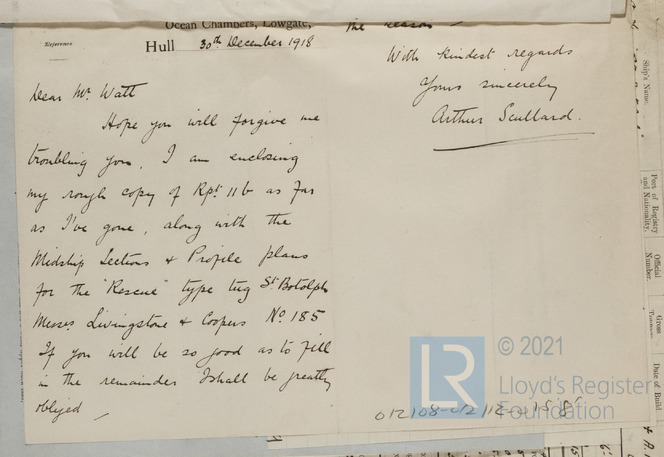 Ocean Chambers, Lowgate,
Reference
Hull 30th December 1918
Dear Mr. Watt
Hope you will forgive me
troubling you, I am enclosing
my rough copy of Rpt 11b as far
as I've gone, along with the
Midship Sections & Profile plans
for the "Rescue" type tug St Botolph
Messrs Livingstone & Coopers No. 185
If you will be so good as to fill
in the remainder I shall be greatly
obliged
the reason
With kindest regards
Yours sincerely
Arthur Scullard.
Ship's Name.
Port of Registry
and Nationality.
Official
Number.
Gross
Tonnage
Date of Build
LR © 2021
Lloyd's Register
Foundation